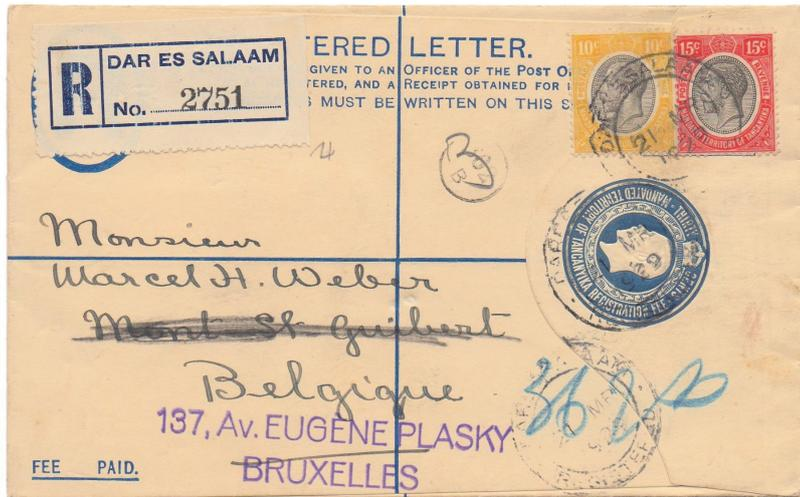 R
DAR ES SALAAM
No. 2751
TERED LETTER.
GIVEN TO AN OFFICER OF THE POST O
TERED, AND A RECEIPT OBTAINED FOR I
S MUST BE WRITTEN ON THIS S
10c 10c
15c 15c
MANDATED TERRITORY OF TANGANYIKA REGISTRATION FEE
Monsieur
Marcel H. Weber
Mont St Guibert
Belgique
137, Av. EUGÈNE PLASKY
BRUXELLES
FEE PAID.